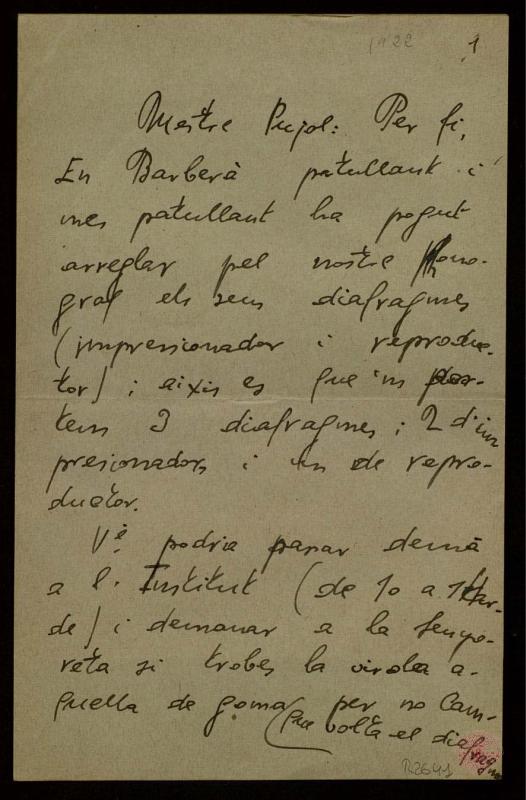 1922
1
Mestre Pujol: Per fi,
En Barberà patullant i
mes patullant ha pogut
arreglar pel nostre fono-
graf els seus diafragmes
(impresionador i reproduc-
tor) i aixis es que 'ns por-
tem 3 diafragmes; 2 d'im
presionadors i un de repro-
ductor.
Vè. podria pasar demà
a l'Institut (de 10 a
de) i demanar a la Senyo-
reta si trobes la virolea a-
quella de goma per no Cam-
(que volta el diafragma
R2641